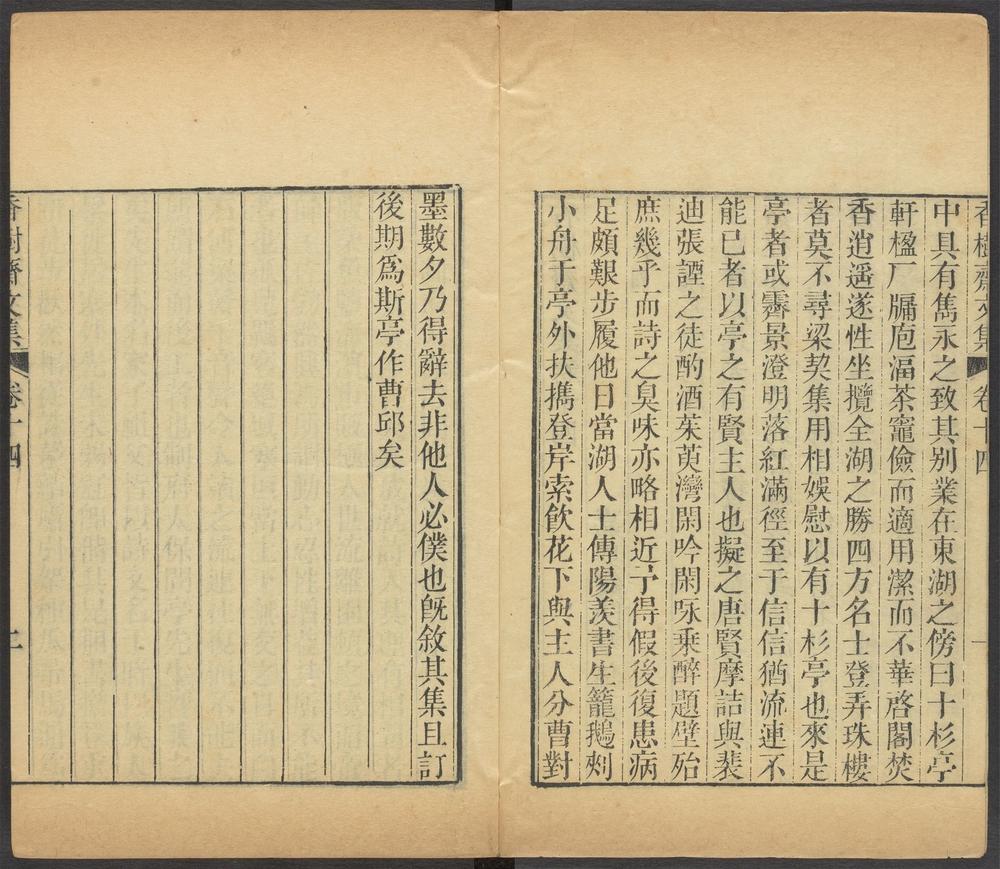 香樹齋文集 卷十四
中具有雋永之致其别業在東湖之傍曰十杉亭
軒楹厂牖庖湢茶竈儉而適用潔而不華啓閣焚
香逍遥遂性坐攬全湖之勝四方名士登弄珠樓
者莫不尋梁契集用相娛慰以有十杉亭也來是
亭者或霽景澄明落紅滿徑至于信信猶流連不
能已者以亭之有賢主人也擬之唐賢摩詰與裴
迪張諲之徒酌酒茱萸灣閑吟閑咏乘醉題壁殆
庶幾乎而詩之臭味亦略相近予得假後復患病
足頗艱步履他日當湖人士傳陽羨書生籠鵝刺
小舟于亭外扶攜登岸索飲花下與主人分曹對
墨數夕乃得辭去非他人必僕也旣敘其集且訂
後期爲斯亭作曹邱矣
香樹齋文集 卷十四